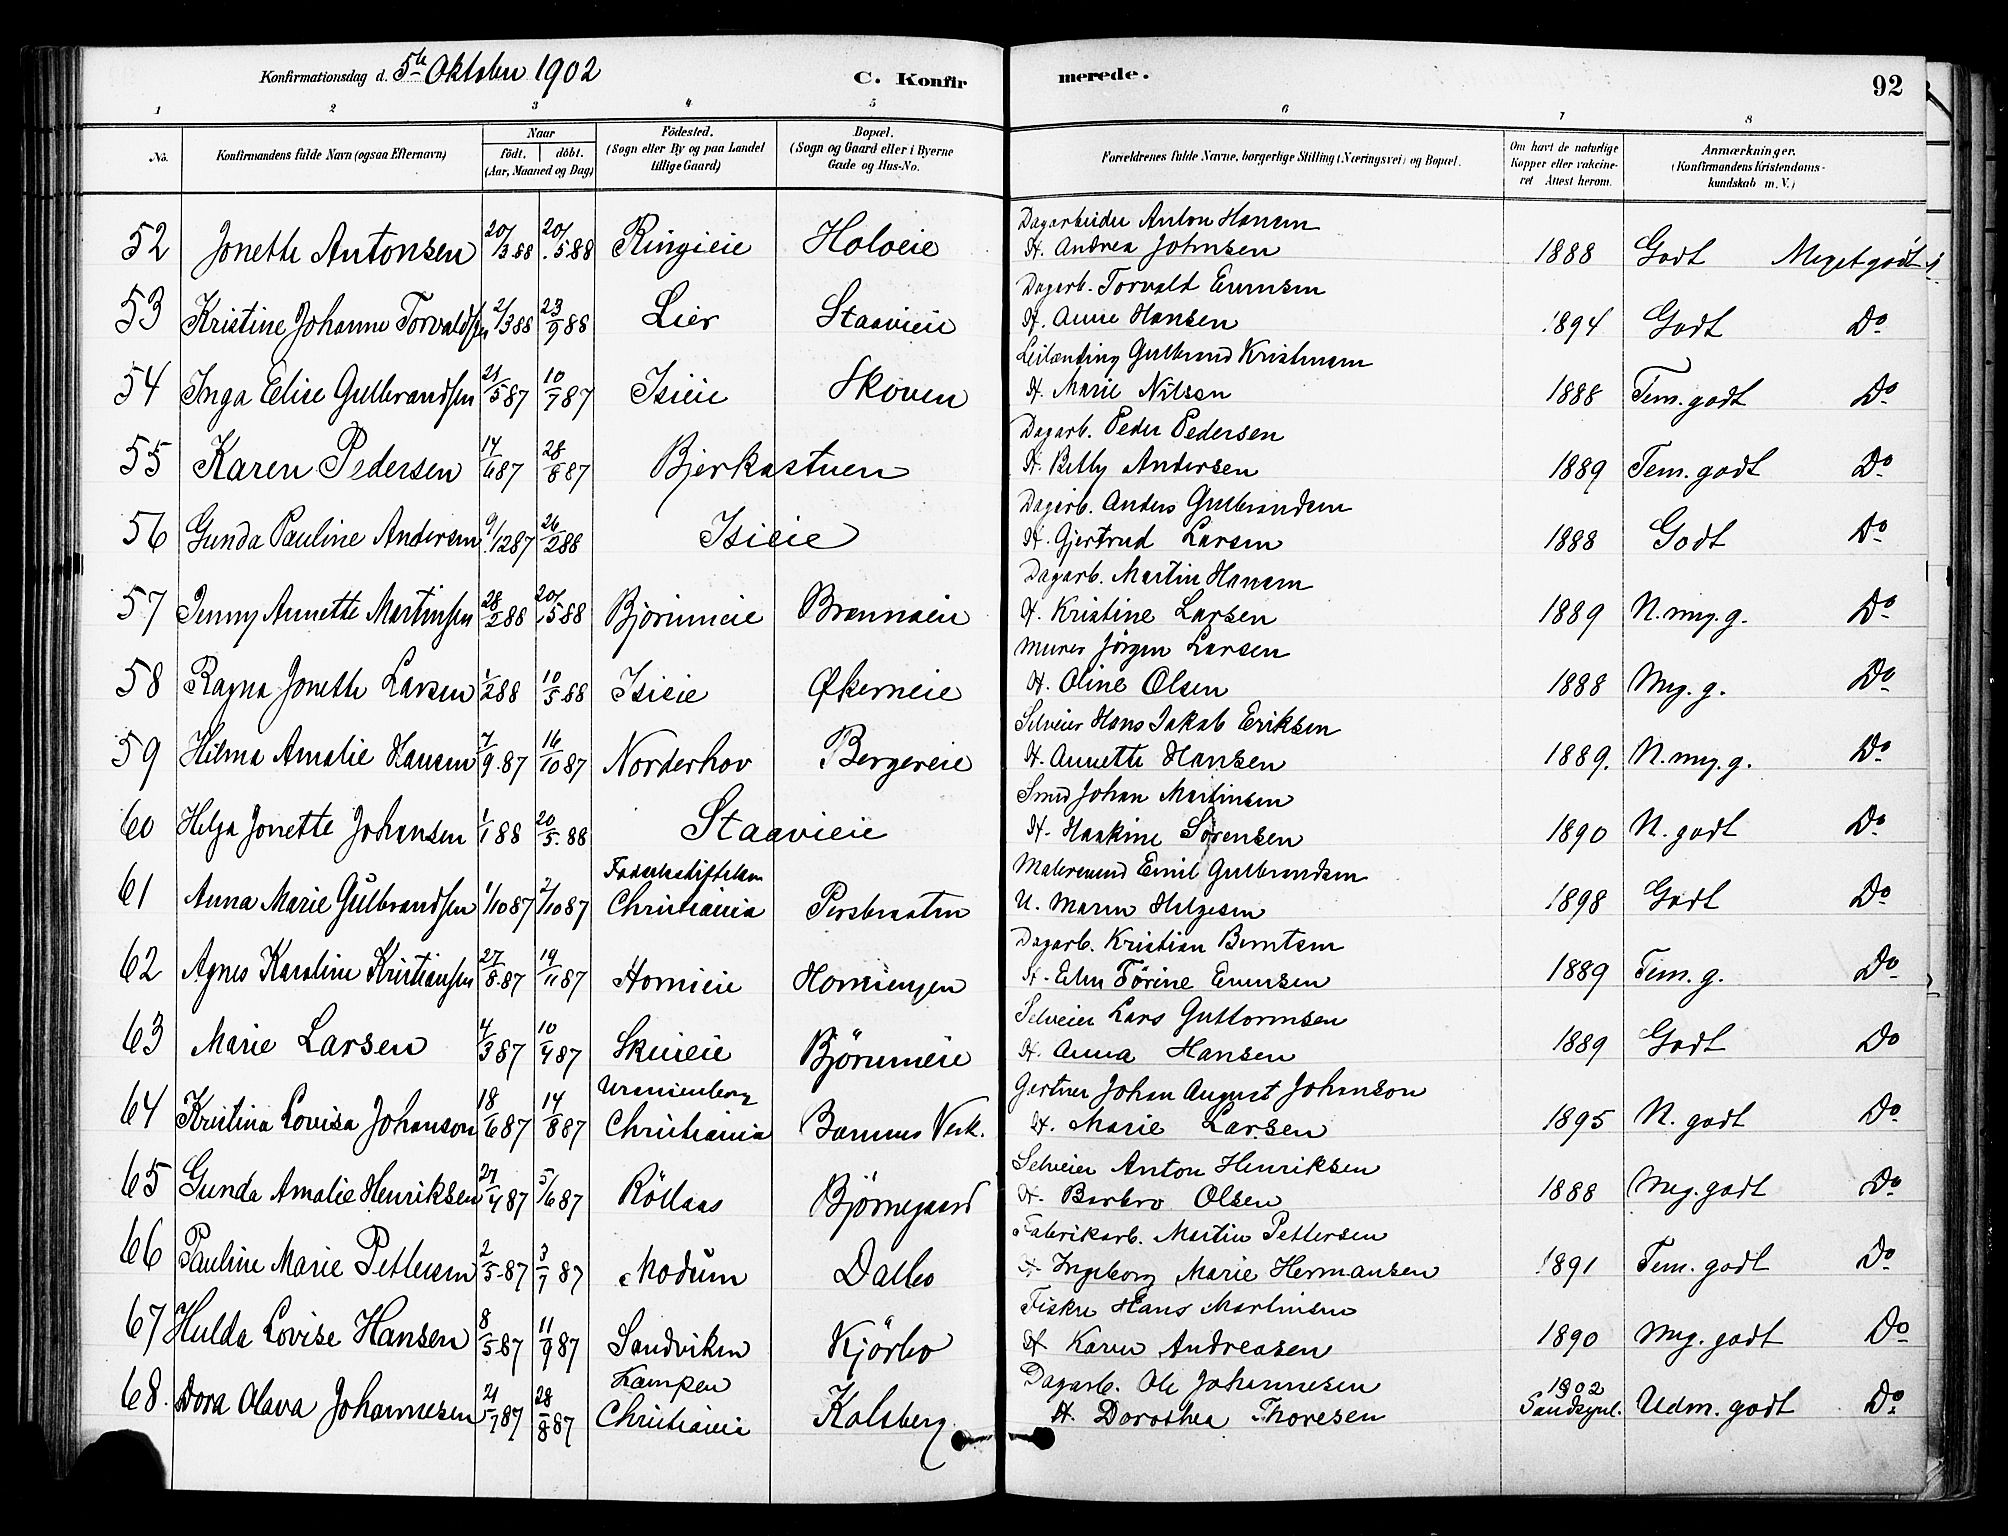 Konfirmationsdag d. 5te Oktober 1902 C. Konfir merede. 92
1 2 3 4 5 6 7 8
No. Konfirmandens fulde Navn (ogsaa Efternavn) Naar født. døbt. (Aar, Maaned og Dag) Födested. (Sogn eller By og paa Landet tillige Gaard) Bopæl. (Sogn og Gaard eller i Byerne Gade og Hus-No. Forældrenes fulde Navne, borgerlige Stilling (Næringsvei) og Bopæl. Om havt de naturlige Kopper eller vakcineret Attest herom. Anmærkninger. (Konfirmandens Kristendomskundskab m. V.)
Dagarbeider Anton Hansen
52 Jonette Antonsen 20/3 88 20/5 88 Ringieie Holoeie H. Andrea Johnsen 1888 Godt Meget godt
Dagarb. Torvald Evensen
53 Kristine Johanne Torvaldsen 2/3 88 23/9 88 Lier Staavieie H. Anne Hansen 1894 Godt Do
Leilænding Gulbrand Kristensen
54 Inga Elise Gulbrandsen 21/5 87 10/7 87 Isieie Skoven H. Marie Nilsen 1888 Tem. godt Do
Dagarb. Peder Pedersen
55 Karen Pedersen 14/6 87 28/8 87 Bjerkastuen H. Betty Andersen 1889 Tem. godt Do
Dagarb. Anders Gulbrandsen
56 Gunda Pauline Andersen 9/12 87 26/2 88 Isieie H. Gjertrud Larsen 1888 Godt Do
Dagarb. Martin Hansen
57 Jenny Annette Martinsen 28/2 88 20/5 88 Bjørnmeie Brannaeie H. Kristine Larsen 1889 N. mg. g. Do
Murer Jørgen Larsen
58 Ragna Jonette Larsen 1/2 88 10/5 88 Isieie Økerneie H. Oline Olsen 1888 Mg. g. Do
Selveier Hans Jakob Eriksen
59 Hilma Amalie Hansen 7/9 87 16/10 87 Norderhov Bergereie H. Annette Hansen 1889. N. mg. g. Do
Smed Johan Martinsen
60 Helga Jonette Johansen 1/1 88 20/5 88 Staavieie H. Haakine Sørensen 1890 N. godt Do
Fødselsstiftelsen Malersvend Emil Gulbrandsen
61 Anna Marie Gulbrandsen 1/10 87 2/10 87 Christiania Persbraaten U. Maren Helgesen 1898 Godt Do
Dagarb. Kristian Berntsen
62 Agnes Karoline Kristiansen 27/8 87 19/11 87 Hornieie Horniengen H. Elen Tørine Evensen 1889 Tem. g. Do
Selveier Lars Guttormsen
63 Marie Larsen 4/3 87 10/4 87 Skuieie Bjørumeie H. Anna Hansen 1889 Godt Do
Uranienborg Gartner Johan August Johnson
64 Kristina Lovisa Johanson 18/6 87 14/8 87 Christiania Bærums Verk. H. Marie Larsen 1895 N. godt Do
Selveier Anton Henriksen
65 Gunda Amalie Henriksen 27/4 87 5/6 87 Rödlaas Bjørnegaard H. Barbro Olsen 1888 Mg. godt Do
Fabrikarb. Martin Pettersen
66 Pauline Marie Pettersen 2/5 87 3/7 87 Modum Dalbo H. Ingeborg Marie Hermansen 1891 Tem. godt Do
Fisker Hans Martinsen
67 Hulda Lovise Hansen 8/5 87 11/9 87 Sandviken Kjørbo H Karen Andreasen 1890 Mg. godt Do
Kampen Dagarb. Ole Johannesen 1902
68. Dora Olava Johannesen 21/7 87 28/8 87 Christiania Kalsberg H. Dorothea Thoresen Sandsynl. Udm. godt Do